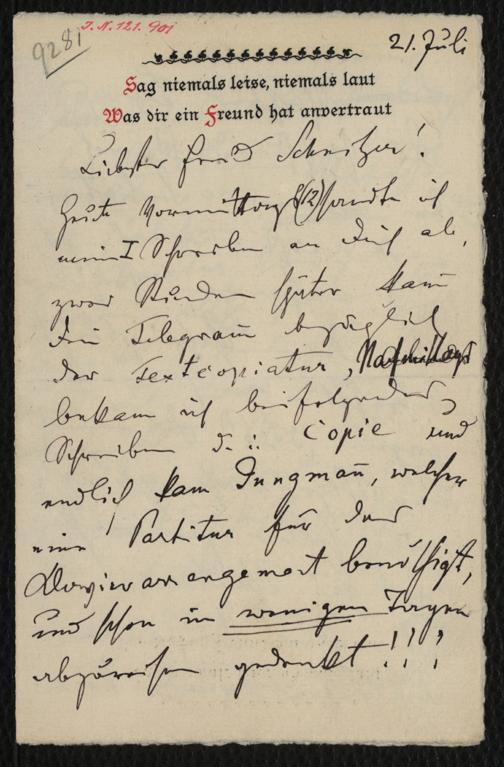 9281
I.N. 121.901
21. Juli
Sag niemals leise, niemals laut
Was dir ein Freund hat anvertraut
Liebster Freund Schnitzer!
Heute Vormittags (12) sandte ich
mein I Schreiben an Dich ab,
zwei Stunden später kam
Dein Telegram̅ bezüglich
der Textcopiatur, Nachmittags
bekam ich beifolgendes
Schreiben d. i. Copie und
endlich kam Jungman̅, welcher
eine Partitur für das
Clavierarrangement benöthigt,
und schon in wenigen Tagen
abzureisen gedenkt!!!